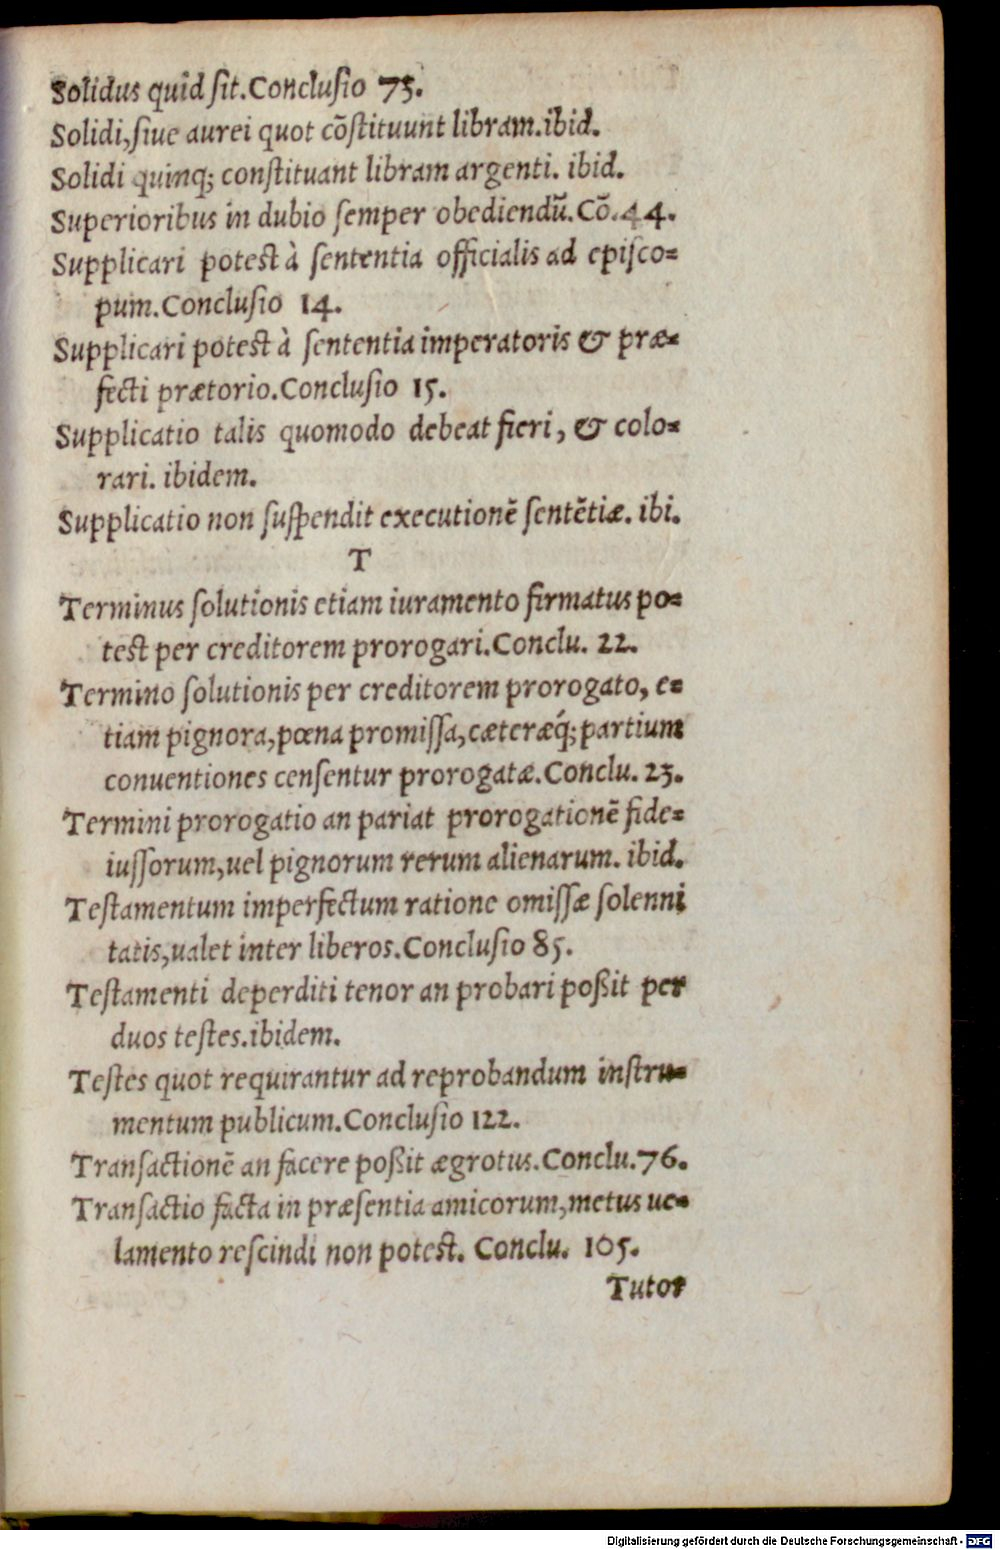 Solidus quid ſit.Concluſio 73.
Solidi,ſiue aurei quot cõſtituunt libram.ibid.
Solidi quinq; conſtituant libram argenti. ibid.
Superioribus in dubio ſemper obediendũ.Cõ.44.
Supplicari potest à ſententia officialis ad epiſco=
pum.Concluſio 14.
Supplicari potest à ſententia imperatoris & præ=
fecti prætorio.Concluſio 15.
Supplicatio talis quomodo debeat fieri, & colo=
rari. ibidem.
Supplicatio non ſuſpendit executionẽ ſentẽtiæ. ibi.
T
Terminus ſolutionis etiam iuramento firmatus po=
test per creditorem prorogari.Conclu. 22.
Termino ſolutionis per creditorem prorogato, e=
tiam pignora,pœna promiſſa,cæteræq́;partium
conuentiones cenſentur prorogatæ.Conclu. 23.
Termini prorogatio an pariat prorogationẽ fide=
iuſſorum,uel pignorum rerum alienarum. ibid.
Teſtamentum imperfectum ratione omiſſæ ſolenni
tatis,ualet inter liberos.Concluſio 85.
Teſtamenti deperditi tenor an probari poßit per
duos teſtes.ibidem.
Teſtes quot requirantur ad reprobandum inſtru=
mentum publicum.Concluſio 122.
Tranſactionẽ an facere poßit ægrotus.Conclu.76.
Tranſactio facta in præſentia amicorum,metus ue=
lamento reſcindi non potest. Conclu. 105.
Tutor
Digitalisierung gefördert durch die Deutsche Forschungsgemeinschaft - DFG